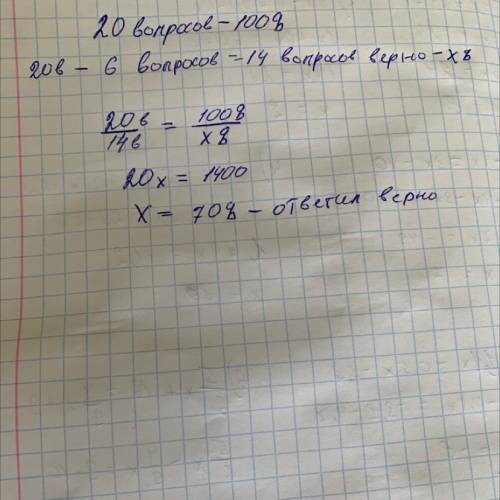 20 вопросов – 100%
20в – 6 вопросов = 14 вопросов верно – х%
20в/14в = 100%/х%
20х = 1400
х = 70% – ответил верно